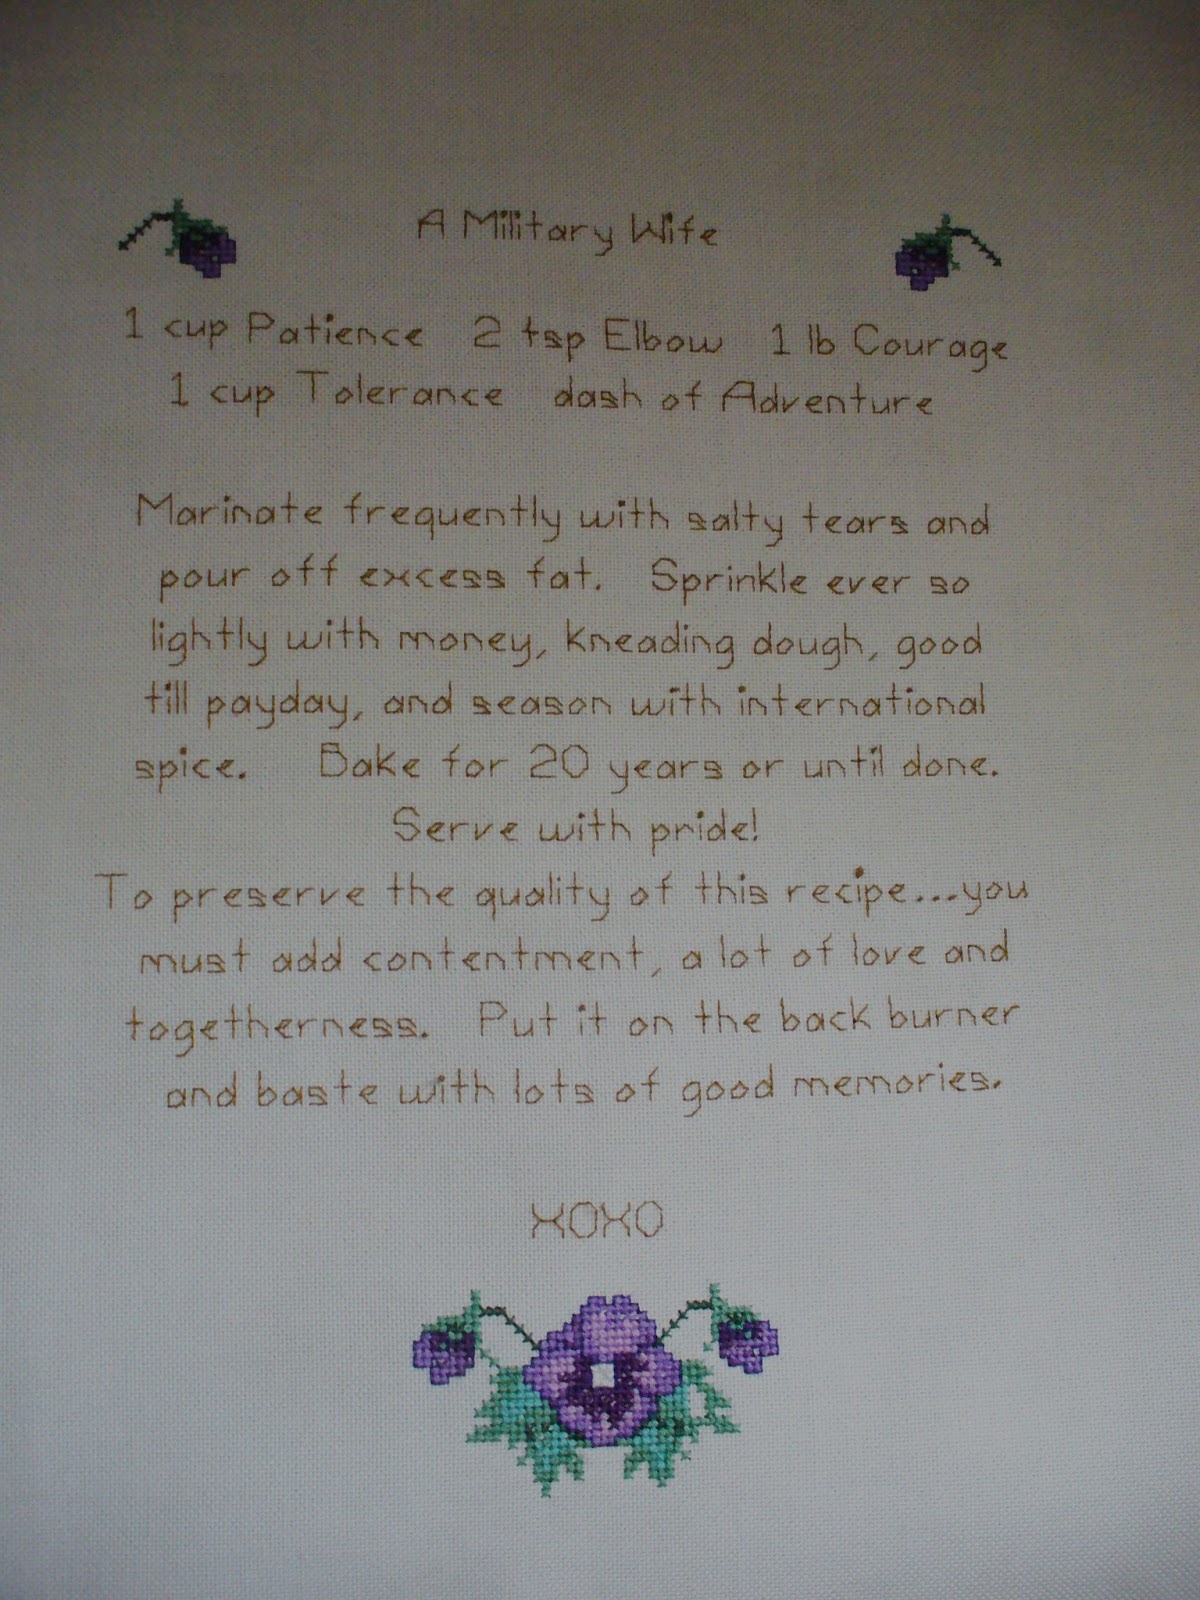 A Military Wife
1 cup Patience 2 tsp Elbow 1 lb Courage
1 cup Tolerance dash of Adventure
Marinate frequently with salty tears and
pour off excess fat. Sprinkle ever so
lightly with money, kneading dough, good
till payday, and season with international
spice. Bake for 20 years or until done.
Serve with pride!
To preserve the quality of this recipe...you
must add contentment, a lot of love and
togetherness. Put it on the back burner
and baste with lots of good memories.
XOXO